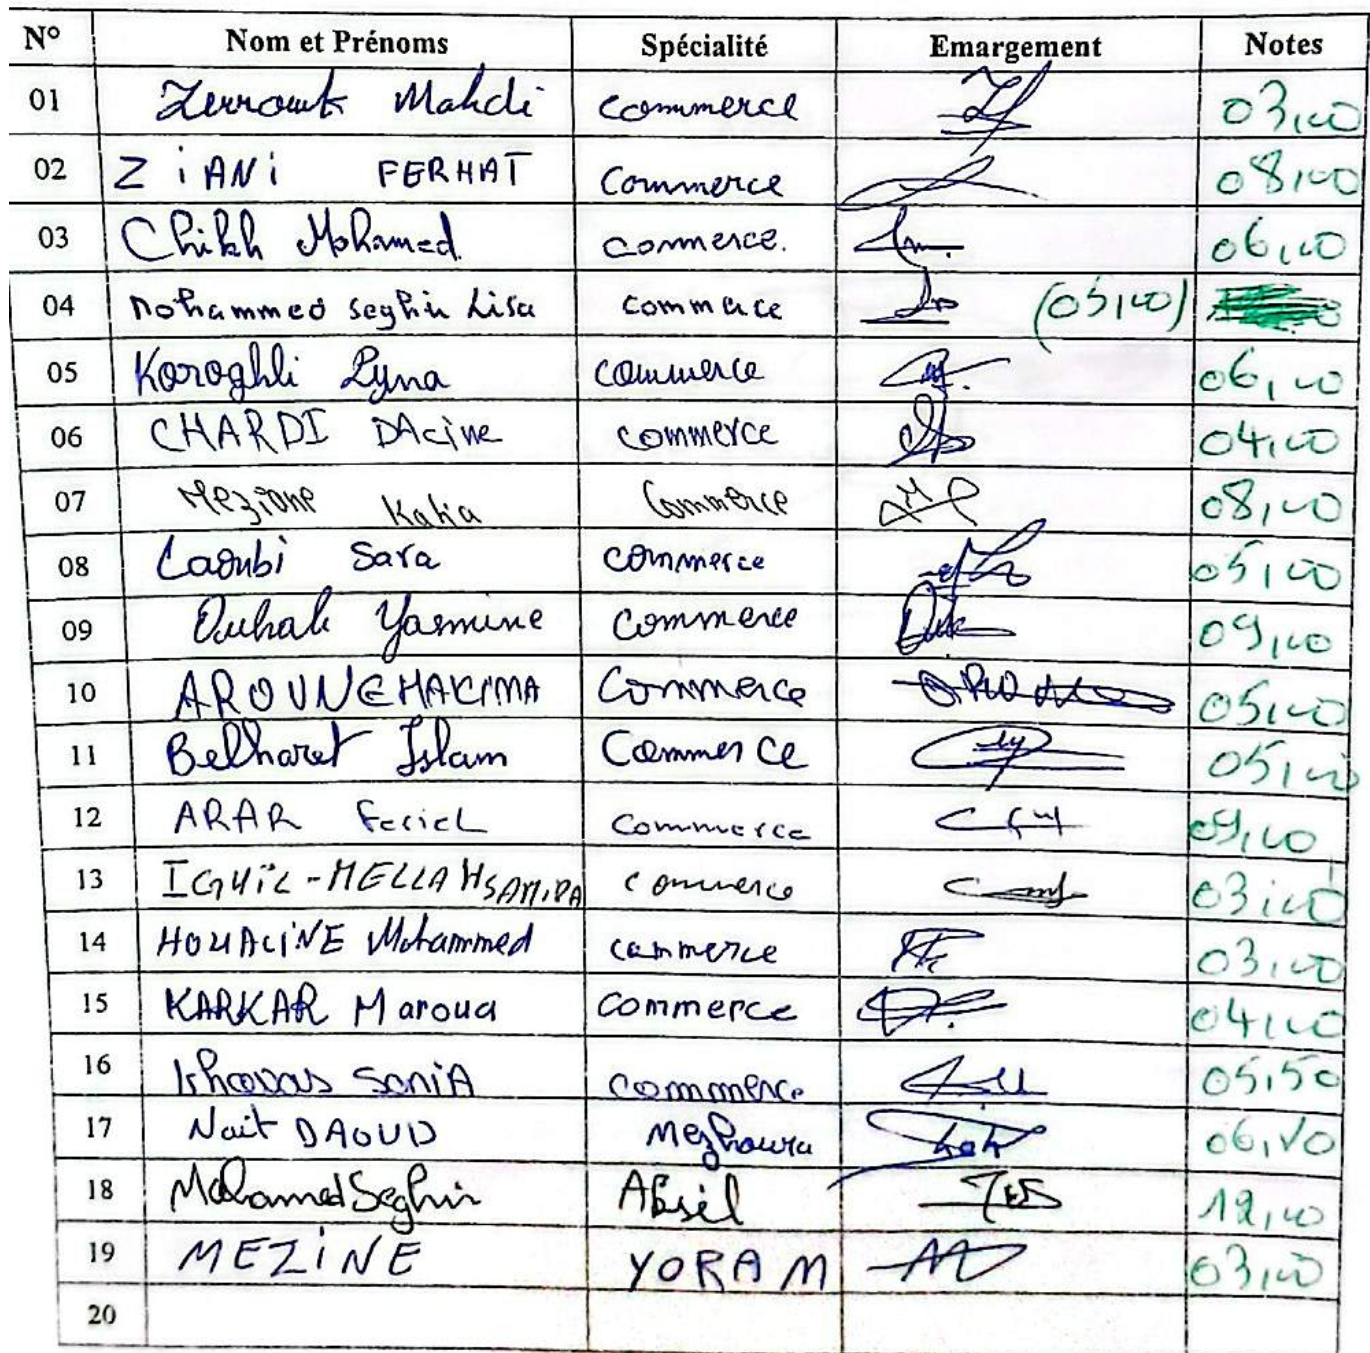 N° Nom et Prénoms Spécialité Emargement Notes
01 Zerrouk Mahdi commerce 03,00
02 ZiANi FERHAT Commerce 08,00
03 Chikh Mohamed commerce. 06,00
04 Mohammed seghir Lisa commerce (05,00)
05 Koroghli Lyna commerce 06,00
06 CHARDI DAcine commerce 04,00
07 Meziane Katia Commerce 08,00
08 Laoubi Sara commerce 05,00
09 Ouhab Yasmine Commerce 09,00
10 AROUNE HAKIMA Commerce 05,00
11 Belharet Islam Commerce 05,00
12 ARAR Feriel Commerce 09,00
13 IGUiL-MELLAH SAMIRA commerce 03,00
14 HOUACiNE Mohammed commerce 03,00
15 KARKAR Maroua commerce 04,00
16 khovas SoniA commerce 05,50
17 Nait DAOUD Mezhoura
18 Mohamed Seghir Absil 12,00
19 MEZiNE YORAM 03,00
20